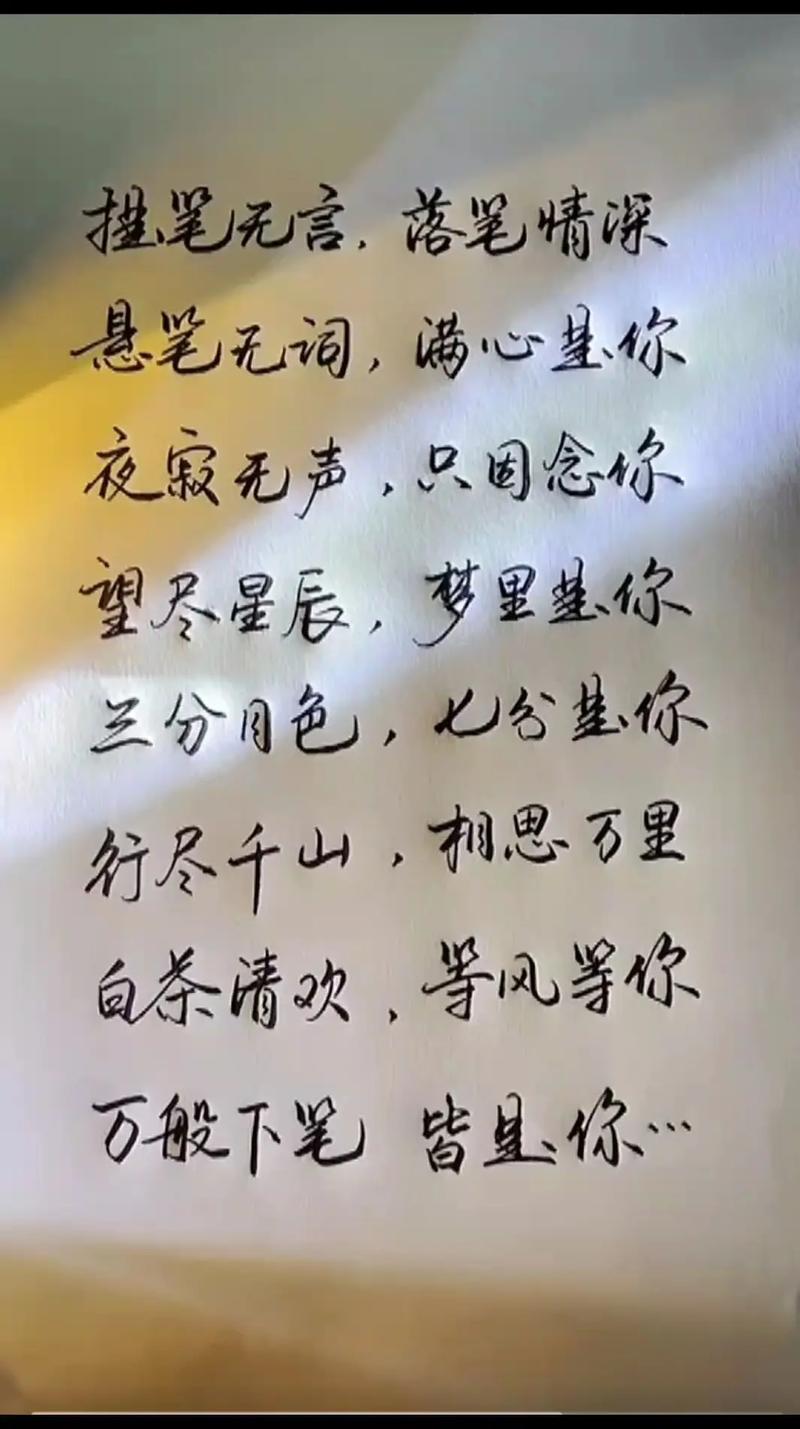 提笔无言，落笔情深
悬笔无词，满心是你
夜寂无声，只因念你
望尽星辰，梦里是你
三分月色，七分是你
行尽千山，相思万里
白茶清欢，等风等你
万般下笔 皆是你…